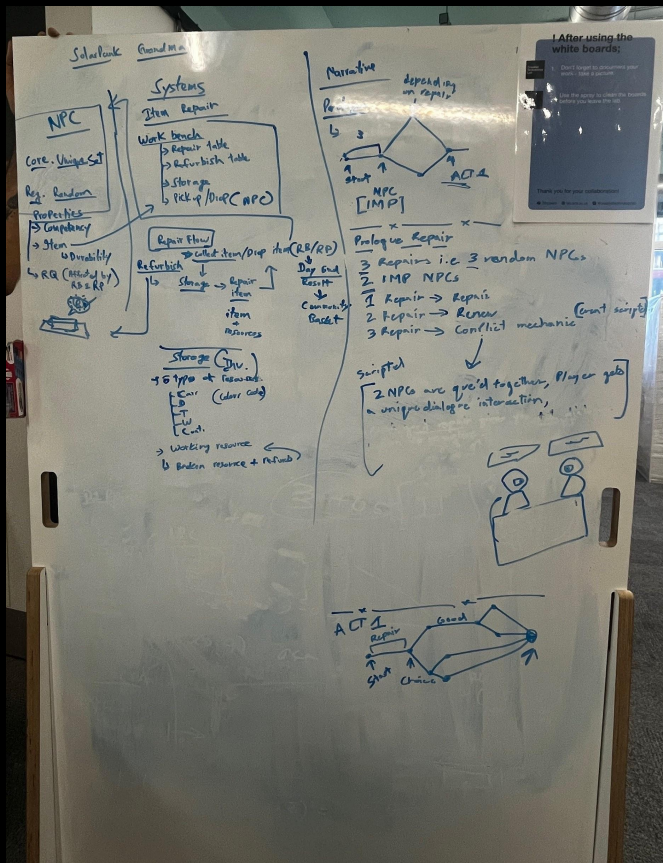 SolarPunk Grandma
Systems
Item Repair
NPC
Core. Unique Set
Reg. Random
Properties
→ Competency
→ Item
↳ Durability
↳ RQ (Affected by
RB & RP)
Work bench
→ Repair table
→ Refurbish table
→ Storage
→ Pickup/Drop (NPC)
Repair Flow
→ collect item/Drop item (RB/RP)
Refurbish
↳ Storage → Repair
item
item
+
resources
Day End
Result
Community
Basket
Storage (Inv.)
→ 5 type of resources
(color code)
E
T
W
→ Working resource
↳ Broken resource + Refurb
Narrative
depending
on repair
3
Start
ACT 1
NPC
[IMP]
Prologue Repair
3 Repairs i.e 3 random NPCs
2 IMP NPCs
1 Repair → Repair
2 Repair → Renew
3 Repair → Conflict mechanic
scripted
[2 NPCs are que'd together, Player gets
a unique dialogue interaction,
ACT 1
Repair
Good
Start
Choice
! After using the
white boards;
Don't forget to document your
work - take a picture
Use the spray to clean the boards
before you leave the lab
Thank you for your collaboration!